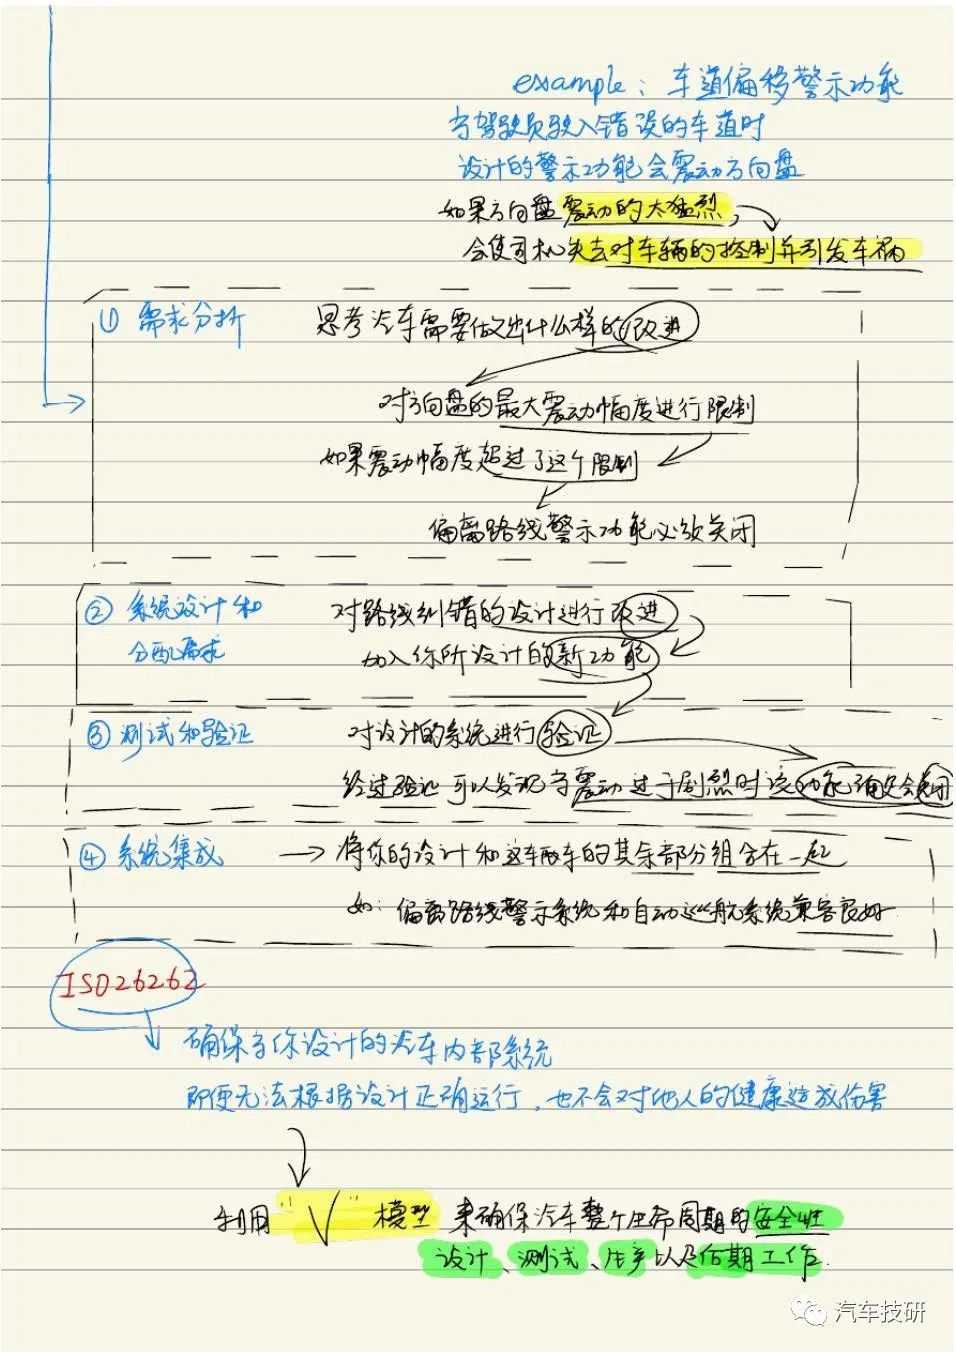 example：车道偏移警示功能
当驾驶员驶入错误的车道时
设计的警示功能会震动方向盘
如果方向盘震动的太猛烈，
会使司机失去对车辆的控制并引发车祸
① 需求分析 思考汽车需要做出什么样的改进
对方向盘的最大震动幅度进行限制
如果震动幅度超过了这个限制
偏离路线警示功能必须关闭
② 系统设计和 对路线纠错的设计进行改进
分配需求 加入你所设计的新功能
③ 测试和验证 对设计的系统进行验证
经过验证可以发现当震动过于剧烈时该功能确实会关闭
④ 系统集成 → 将你的设计和这辆车的其余部分组合在一起
如：偏离路线警示系统和自动巡航系统兼容良好
ISO26262
确保当你设计的汽车内部系统
即便无法根据设计正确运行，也不会对他人的健康造成伤害
利用“V”模型 来确保汽车整个生命周期的安全性
设计、测试、生产以及后期工作.
汽车技研